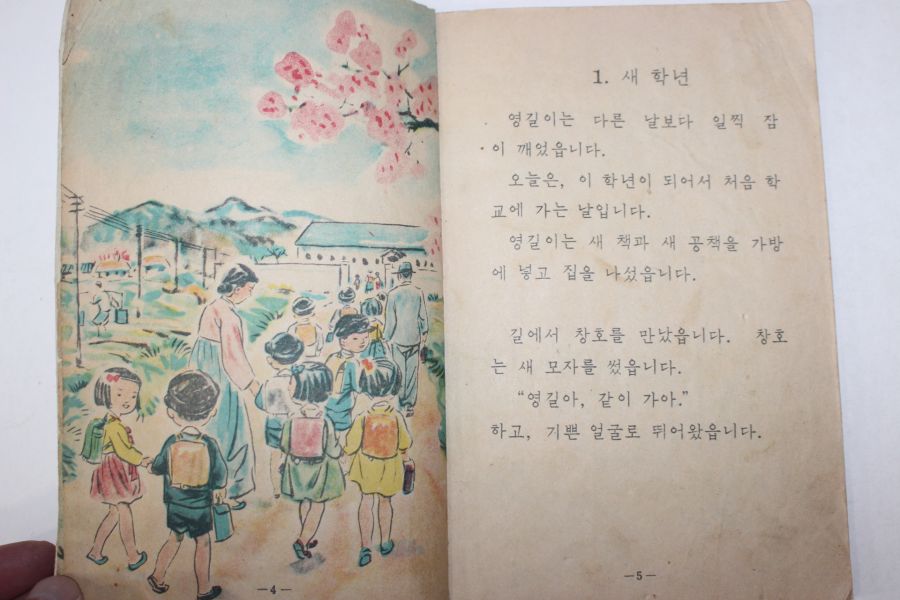 1. 새 학년
영길이는 다른 날보다 일찍 잠
이 깨었읍니다.
오늘은, 이 학년이 되어서 처음 학
교에 가는 날입니다.
영길이는 새 책과 새 공책을 가방
에 넣고 집을 나섰읍니다.
길에서 창호를 만났읍니다. 창호
는 새 모자를 썼읍니다.
“영길아, 같이 가아.”
하고, 기쁜 얼굴로 뛰어왔읍니다.
—4—
—5—